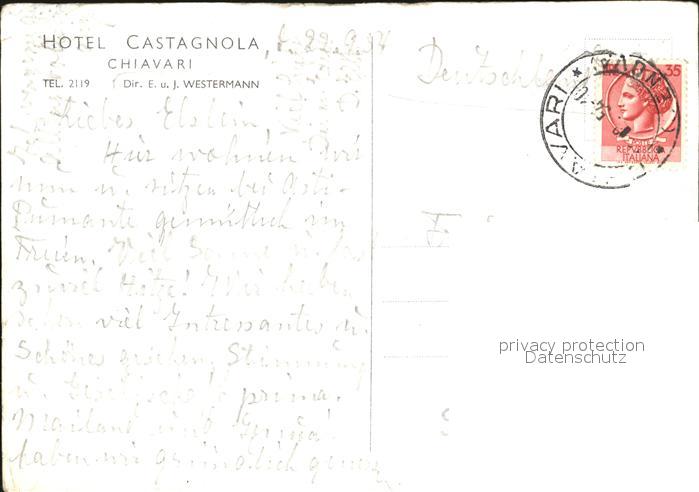 HOTEL CASTAGNOLA, d. 22.9.54
CHIAVARI
TEL. 2119 Dir. E. u. J. WESTERMANN
Deutschland
35
REPUBBLICA
ITALIANA
CHIAVARI
Liebes Elslein,
Hier wohnen wir
nun u. sitzen bei Asti-
Spumante gemütlich im
Freien. Viel Sonne u. fast
zuviel Hitze! Wir haben
schon viel Interessantes u.
Schönes gesehen, Stimmung
u. prima.
Mailand und Genua
haben wir gründlich
privacy protection
Datenschutz